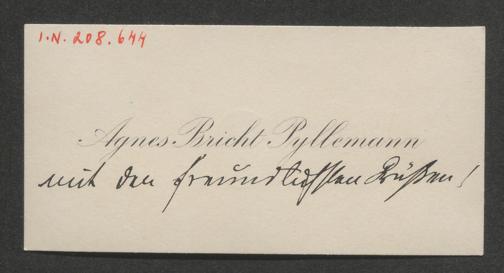 I.N. 208.644
Agnes Bricht Pyllemann
mit den freundlichsten Grüßen!